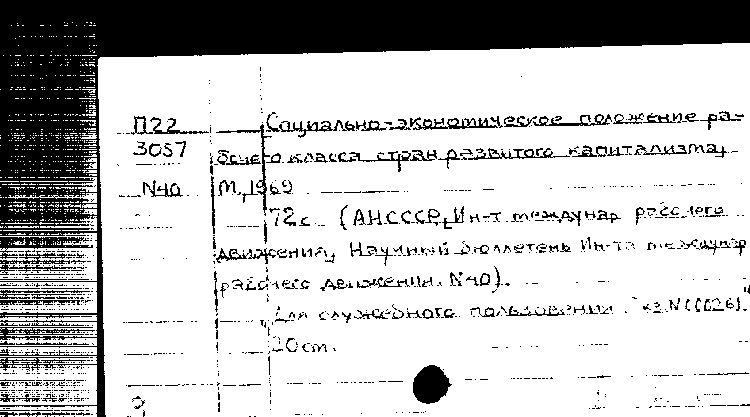 П22 Социально-экономическое положение ра-
3057 бочего класса стран развитого капитализма,
N40 М., 1969
72с. (АНСССР, Ин-т междунар рабочего
движения, Научный бюллетень Ин-та междунар
рабочего движения. N40).
"Для служебного пользования.
20cm.